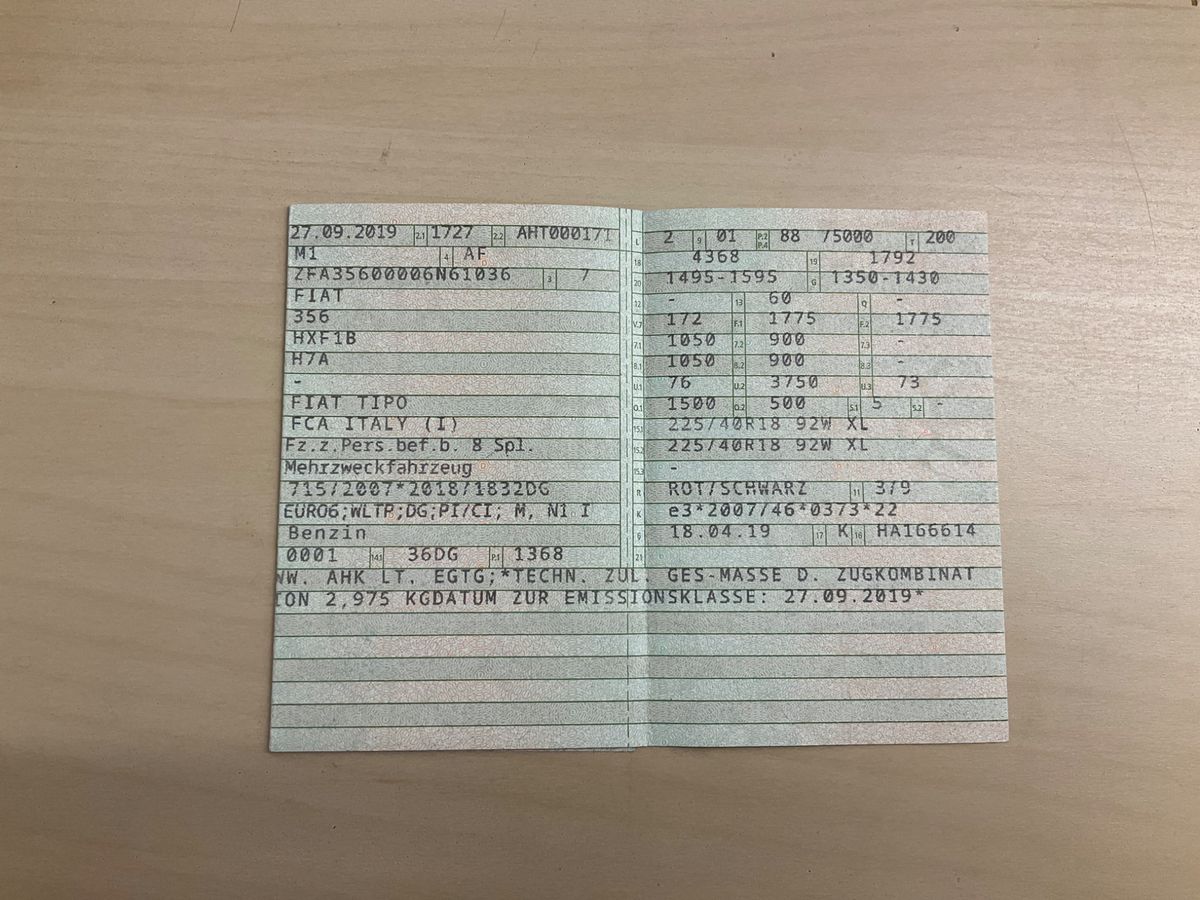 27.09.2019 2.1 1727 2.2 AHT000171
M1 4 AF
ZFA35600006N61036 3 7
FIAT
356
HXF1B
H7A
-
FIAT TIPO
FCA ITALY (I)
Fz.z.Pers.bef.b. 8 Spl.
Mehrzweckfahrzeug
715/2007*2018/1832DG
EURO6;WLTP;DG;PI/CI; M, N1 I
Benzin
0001 14.1 36DG P.1 1368
L 2 9 01 P.2 P.4 88 75000 T 200
18 4368 19 1792
20 1495-1595 G 1350-1430
12 - 13 60 Q -
V.7 172 F.1 1775 F.2 1775
7.1 1050 7.2 900 7.3 -
8.1 1050 8.2 900 8.3 -
U.1 76 U.2 3750 U.3 73
O.1 1500 O.2 500 S.1 5 S.2 -
15.1 225/40R18 92W XL
15.2 225/40R18 92W XL
15.3 -
R ROT/SCHWARZ 11 3/9
K e3*2007/46*0373*22
6 18.04.19 17 K 16 HA166614
21
WW. AHK LT. EGTG;*TECHN. ZUL. GES-MASSE D. ZUGKOMBINAT
ION 2,975 KGDATUM ZUR EMISSIONSKLASSE: 27.09.2019*